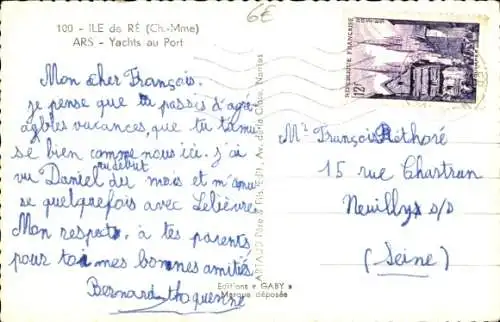 6€
100 - ILE de RÉ (Ch.-Mme)
ARS - Yachts au Port
Mon cher François.
je pense que tu passes d'agré-
ables vacances, que tu t'amu
se bien comme nous ici. j'ai
vu Daniel au début du mois et m'amu
se quelquefois avec Lelièvre
Mon respect à tes parents
pour toi mes bonnes amitiés
Bernard
Editions « GABY »
Marque déposée
ARTAUD Père & Fils, Edit., Nantes
REPUBLIQUE FRANÇAISE
12F
Mr François Rothoré
15 rue Chartran
Neuilly s/S
(Seine)